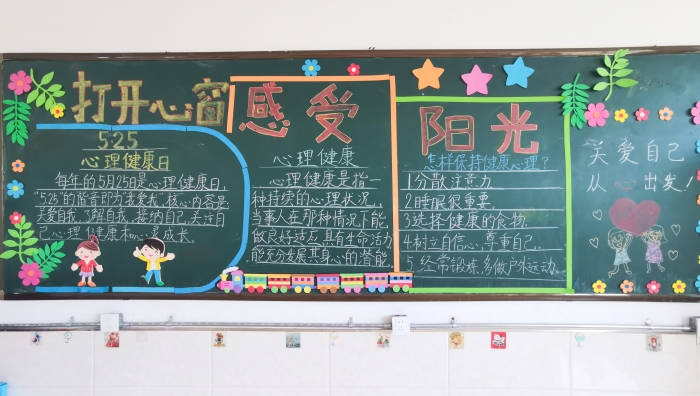 打开心窗
5.25
心理健康日
每年的5月25日是心理健康日,
"5.25"的谐音即为"我爱我",核心内容是:
关爱自我,了解自我,接纳自己,关注自
己心理健康和心灵成长。
感受
心理健康
心理健康是指一
种持续的心理状况,
当事人在那种情况下能
做良好适应,具有生命活力
能充分发展其身心的潜能
阳光
怎样保持健康心理?
1分散注意力
2睡眠很重要
3选择健康的食物
4树立自信心,尊重自己
5.经常锻炼,多做户外运动。
关爱自己
从心出发!